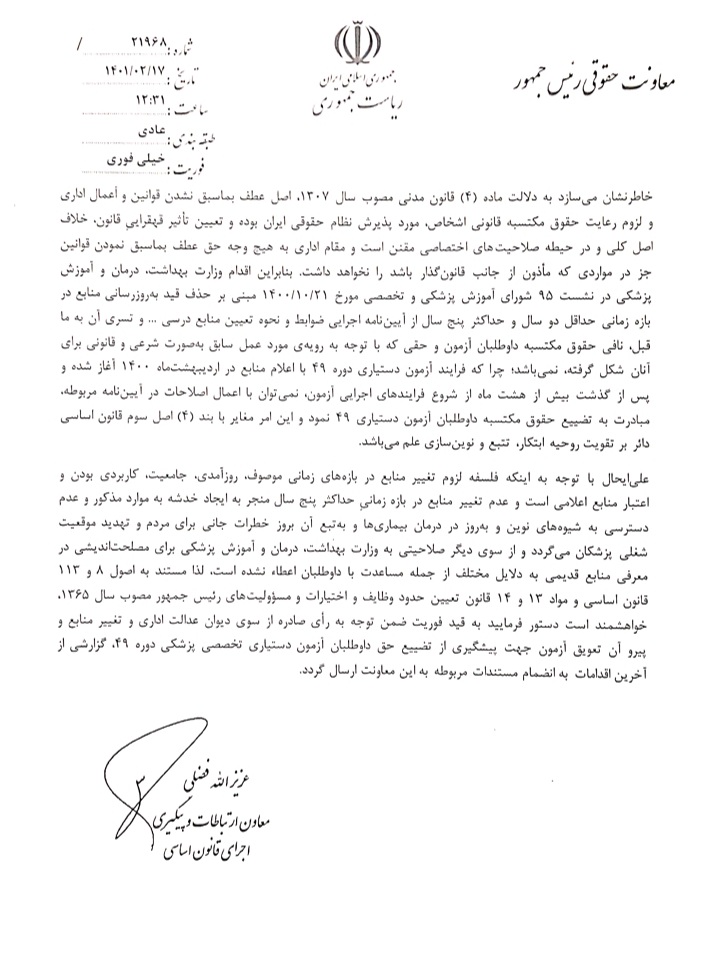 معاونت حقوقی رئیس جمهور
جمهوری اسلامی ایران
ریاست جمهوری
شماره: ۲۱۹۶۸ /
تاریخ: ۱۴۰۱/۰۲/۱۷
ساعت: ۱۲:۳۱
طبقه بندی: عادی
فوریت: خیلی فوری
خاطرنشان می‌سازد به دلالت ماده (۴) قانون مدنی مصوب سال ۱۳۰۷، اصل عطف بماسبق نشدن قوانین و أعمال اداری
و لزوم رعایت حقوق مکتسبه قانونی اشخاص، مورد پذیرش نظام حقوقی ایران بوده و تعیین تأثیر قهقرایی قانون، خلاف
اصل کلی و در حیطه صلاحیت‌های اختصاصی مقنن است و مقام اداری به هیچ وجه حق عطف بماسبق نمودن قوانین
جز در مواردی که مأذون از جانب قانون‌گذار باشد را نخواهد داشت. بنابراین اقدام وزارت بهداشت، درمان و آموزش
پزشکی در نشست ۹۵ شورای آموزش پزشکی و تخصصی مورخ ۱۴۰۰/۱۰/۲۱ مبنی بر حذف قید به‌روزرسانی منابع در
بازه زمانی حداقل دو سال و حداکثر پنج سال از آیین‌نامه اجرایی ضوابط و نحوه تعیین منابع درسی ... و تسری آن به ما
قبل، نافی حقوق مکتسبه داوطلبان آزمون و حقی که با توجه به رویه‌ی مورد عمل سابق به‌صورت شرعی و قانونی برای
آنان شکل گرفته، نمی‌باشد؛ چرا که فرایند آزمون دستیاری دوره ۴۹ با اعلام منابع در اردیبهشت‌ماه ۱۴۰۰ آغاز شده و
پس از گذشت بیش از هشت ماه از شروع فرایندهای اجرایی آزمون، نمی‌توان با اعمال اصلاحات در آیین‌نامه مربوطه،
مبادرت به تضییع حقوق مکتسبه داوطلبان آزمون دستیاری ۴۹ نمود و این امر مغایر با بند (۴) اصل سوم قانون اساسی
دائر بر تقویت روحیه ابتکار، تتبع و نوین‌سازی علم می‌باشد.
علی‌ایحال با توجه به اینکه فلسفه لزوم تغییر منابع در بازه‌های زمانی موصوف، روزآمدی، جامعیت، کاربردی بودن و
اعتبار منابع اعلامی است و عدم تغییر منابع در بازه زمانی حداکثر پنج سال منجر به ایجاد خدشه به موارد مذکور و عدم
دسترسی به شیوه‌های نوین و به‌روز در درمان بیماری‌ها و به‌تبع آن بروز خطرات جانی برای مردم و تهدید موقعیت
شغلی پزشکان می‌گردد و از سوی دیگر صلاحیتی به وزارت بهداشت، درمان و آموزش پزشکی برای مصلحت‌اندیشی در
معرفی منابع قدیمی به دلایل مختلف از جمله مساعدت با داوطلبان اعطاء نشده است، لذا مستند به اصول ۸ و ۱۱۳
قانون اساسی و مواد ۱۳ و ۱۴ قانون تعیین حدود وظایف و اختیارات و مسؤولیت‌های رئیس جمهور مصوب سال ۱۳۶۵،
خواهشمند است دستور فرمایید به قید فوریت ضمن توجه به رأی صادره از سوی دیوان عدالت اداری و تغییر منابع و
پیرو آن تعویق آزمون جهت پیشگیری از تضییع حق داوطلبان آزمون دستیاری تخصصی پزشکی دوره ۴۹، گزارشی از
آخرین اقدامات به انضمام مستندات مربوطه به این معاونت ارسال گردد.
عزیز الله فضلی
معاون ارتباطات و پیگیری
اجرای قانون اساسی